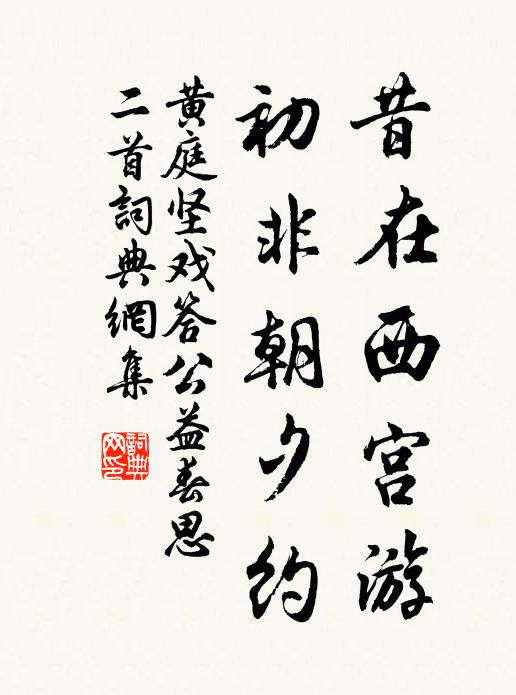 昔在西宫游
初非朝夕约
黄庭坚戏答公益春思
二首詞典網集
詞典网印